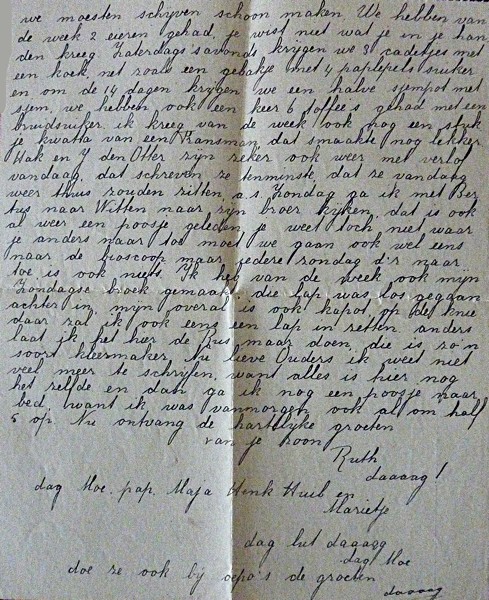 we moesten schrijven schoon maken. We hebben van
de week 2 eieren gehad, je wist niet wat je in je han
den kreeg. Zaterdags'avonds krijgen we 3 cadetjes met
een koek, net zoals een gebakje met 4 paplepels suiker
en om de 14 dagen krijgen we een halve sjempot met
sjem, we hebben ook een keer 6 toffee's gehad met een
bruidsuiker, ik kreeg van de week ook nog een stuk
je kwatta van een Fransman, dat smaakte nog lekker
Wak en J den Otter zijn zeker ook weer met verlof
vandaag, dat schreven ze tenminste dat ze vandaag
weer thuis zouden zitten, a.s. Zondag ga ik met Ber
tus naar Witten naar zijn broer kijken, dat is ook
al weer een poosje geleden, je weet toch niet waar
je anders naar toe moet we gaan ook wel eens
naar de bioscoop maar iedere zondag d'r naar
toe is ook niets. Ik heb van de week ook mijn
Zondagse broek gemaakt, die lap was los gegaan
achter in, mijn overal is ook kapot, op de knie
daar zal ik ook eens een lap in zetten anders
laat ik het hier de Rus maar doen, die is zo'n
soort kleermaker. Nu lieve Ouders ik weet niet
veel meer te schrijven, want alles is hier nog
het zelfde en dan ga ik nog een poosje naar
bed, want ik was vanmorgen ook al om half
5 op. Nu ontvang de hartelijke groeten
van je zoon
Ruth
daaaag!
dag Moe. pap. Maja Henk Huib en
Marietje
dag lui daaagg
dag Moe
doe ze ook bij oepo's de groeten
daaaag